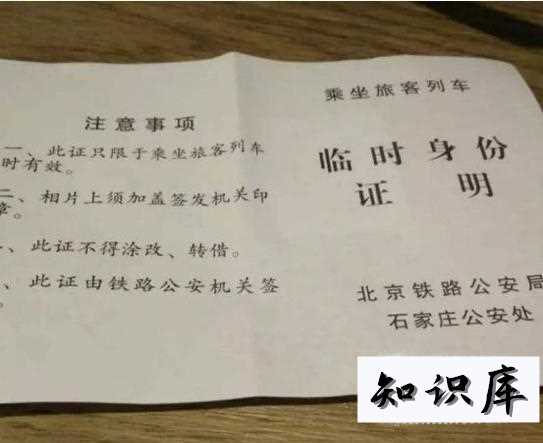 注意事项
一、此证只限于乘坐旅客列车
时有效。
二、相片上须加盖签发机关印
章。
、此证不得涂改、转借。
、此证由铁路公安机关签
。
乘坐旅客列车
临时身份
证明
北京铁路公安局
石家庄公安处
知识库